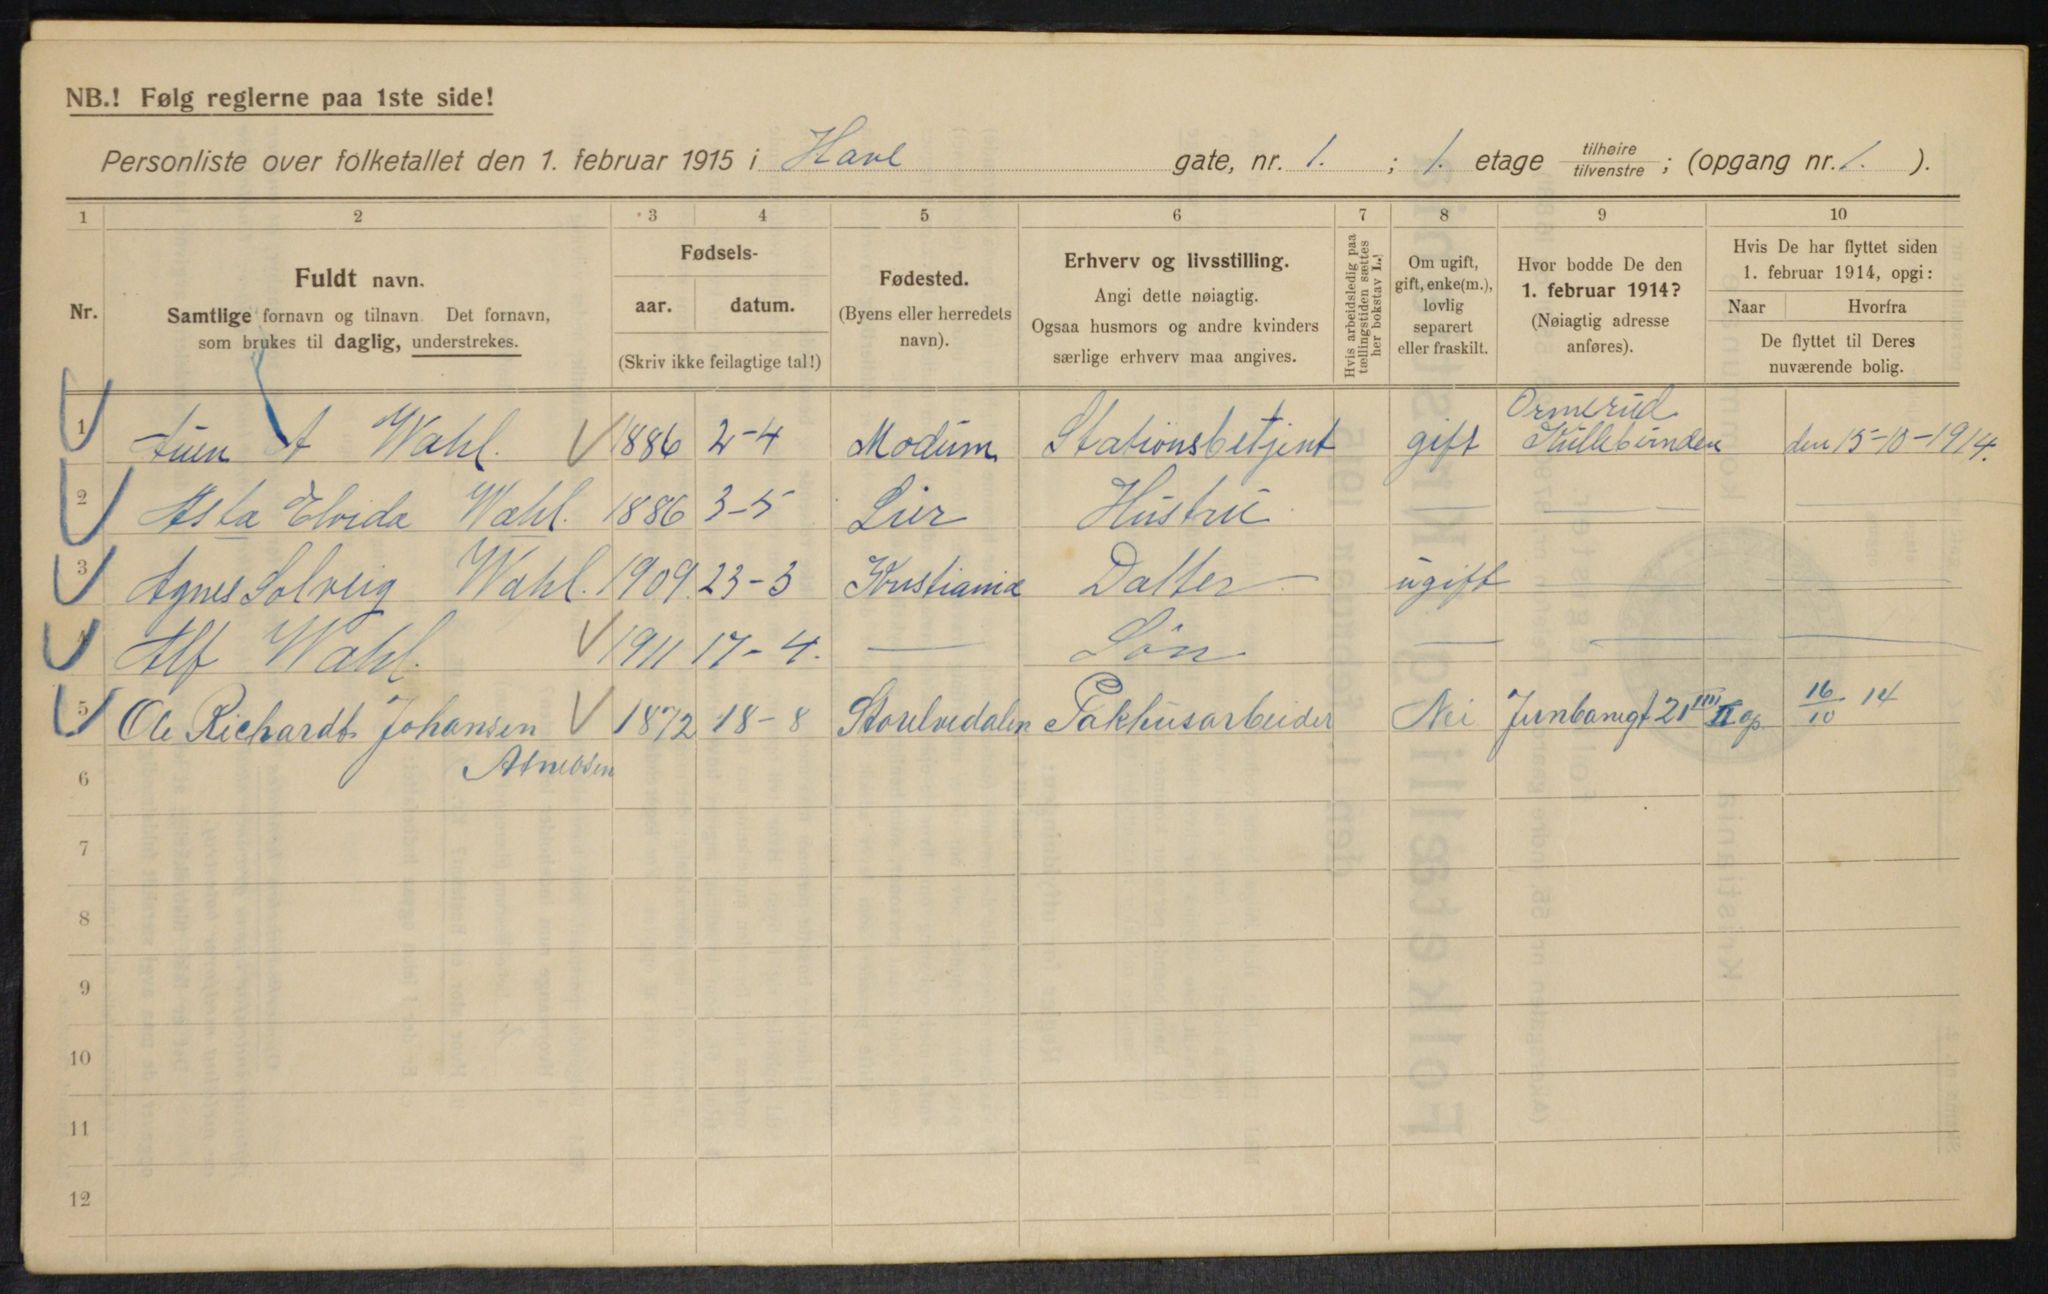 NB.! Følg reglerne paa 1ste side!
Personliste over folketallet den 1. februar 1915 i Havl gate, nr. 1. ; 1. etage tilhøire/tilvenstre ; (opgang nr. 1. ).
1 2 3 4 5 6 7 8 9 10
Nr.
Fuldt navn.
Samtlige fornavn og tilnavn. Det fornavn,
som brukes til daglig, understrekes.
Fødsels-
aar. datum.
(Skriv ikke feilagtige tal!)
Fødested.
(Byens eller herredets
navn).
Erhverv og livsstilling.
Angi dette nøiagtig.
Ogsaa husmors og andre kvinders
særlige erhverv maa angives.
Hvis arbeidsledig paa
tællingstiden sættes
her bokstav L.!
Om ugift,
gift, enke(m.),
lovlig
separert
eller fraskilt.
Hvor bodde De den
1. februar 1914?
(Nøiagtig adresse
anføres).
Hvis De har flyttet siden
1. februar 1914, opgi:
Naar Hvorfra
De flyttet til Deres
nuværende bolig.
Ormerud
1 A Wahl. 1886 2-4 Modum Stationsbetjent gift den 15-10-1914.
2 Asta Elvida Wahl. 1886 3-5 Lier Hustru — — —
3 Agnes Solveig Wahl. 1909. 23-3 Kristiania Datter ugift — —
4 Alf Wahl. 1911 17-4. — Søn — — —
5 Ole Richardt Johansen 1872 18-8 Storelvedalen Pakhusarbeider Nei Jernbanegt 21 III II op 16/10 14
6
7
8
9
10
11
12